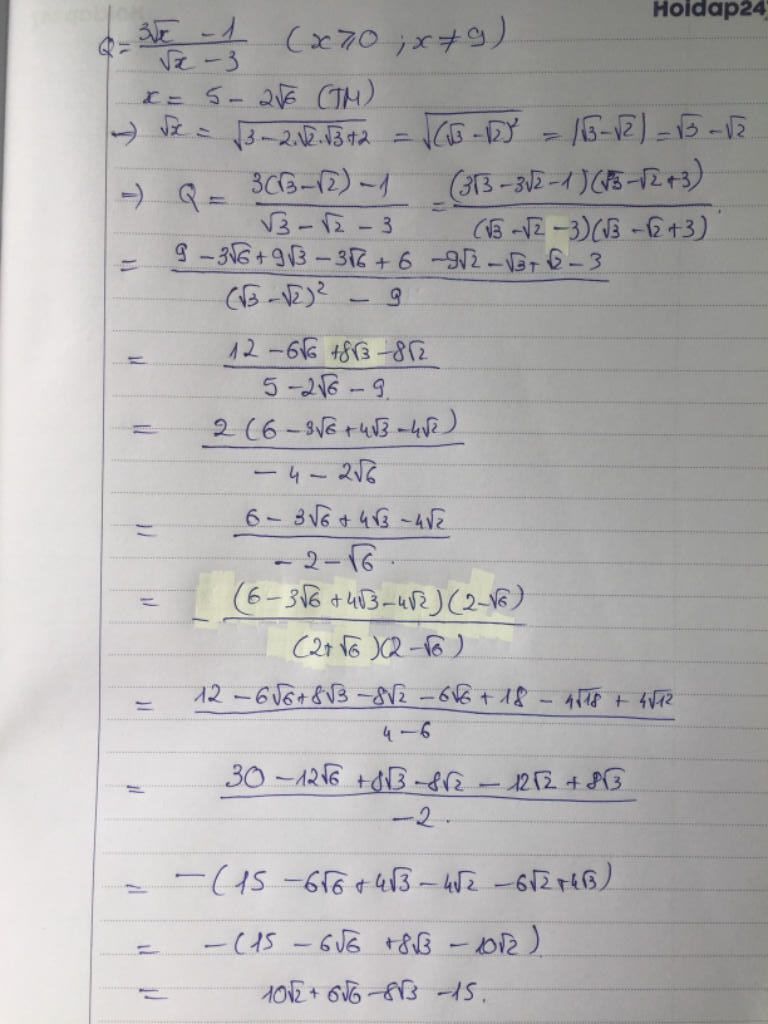 Hoidap24
Q = \frac{3\sqrt{x} - 1}{\sqrt{x} - 3} (x ⩾ 0 ; x ≠ 9)
x = 5 - 2√6 (TM)
→) √x = \sqrt{3 - 2.√2.√3 + 2} = \sqrt{(√3 - √2)^2} = |√3 - √2| = √3 - √2
→) Q = \frac{3(√3 - √2) - 1}{√3 - √2 - 3} = \frac{(3√3 - 3√2 - 1)(√3 - √2 + 3)}{(√3 - √2 - 3)(√3 - √2 + 3)}.
= \frac{9 - 3√6 + 9√3 - 3√6 + 6 - 9√2 - √3 + √2 - 3}{(√3 - √2)^2 - 9}
= \frac{12 - 6√6 + 8√3 - 8√2}{5 - 2√6 - 9.}
= \frac{2(6 - 3√6 + 4√3 - 4√2)}{-4 - 2√6}
= \frac{6 - 3√6 + 4√3 - 4√2}{-2 - √6.}
= - \frac{(6 - 3√6 + 4√3 - 4√2)(2 - √6)}{(2 + √6)(2 - √6)}
= \frac{12 - 6√6 + 8√3 - 8√2 - 6√6 + 18 - 4√18 + 4√12}{4 - 6}
= \frac{30 - 12√6 + 8√3 - 8√2 - 12√2 + 8√3}{-2.}
= -(15 - 6√6 + 4√3 - 4√2 - 6√2 + 4√3)
= -(15 - 6√6 + 8√3 - 10√2)
= 10√2 + 6√6 - 8√3 - 15.